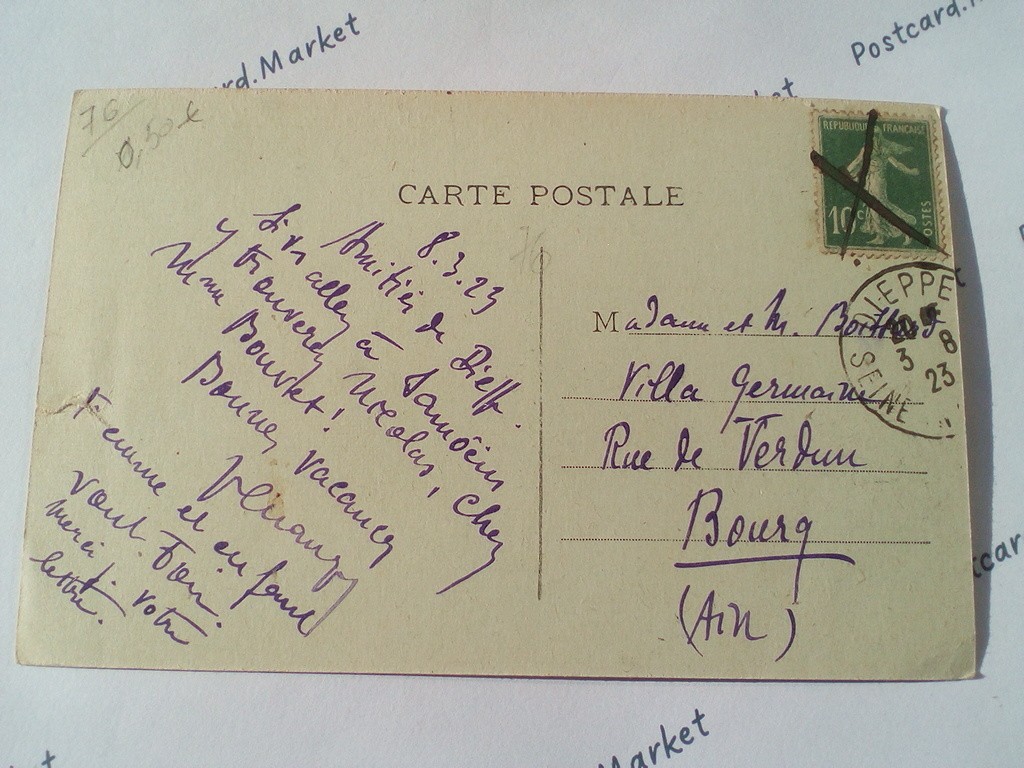 76
0,50 €
CARTE POSTALE
REPUBLIQUE FRANCAISE
10c
POSTES
DIEPPE
3 8
23
SEINE
76
8.3.23
Amitiés de Dieppe.
Si vs allez à Samoëns
y trouverez Nicolas, chez
Mme Bouvet!
Bonnes vacances
Femme et en fant
vont bien.
merci p. votre
lettre.
Madame et M.
Villa Germaine
Rue de Verdun
Bourg
(Ain)
rd.Market
Postcard.
ket
card
Market